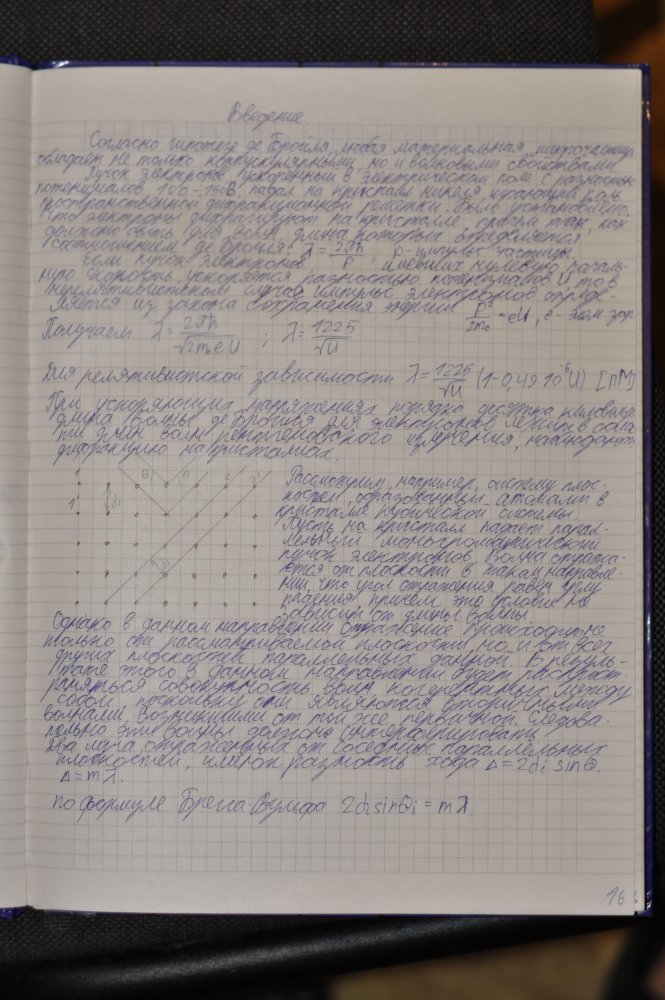 Введение
Согласно гипотезе де Бройля, любая материальная микрочастица
обладает не только корпускулярными но и волновыми свойствами
Пучок электронов ускоренный в электрическом поле с разностью
потенциалов 100-150В падал на кристалл никеля, играющий роль
пространственной дифракционной решётки. Было установлено,
что электроны дифрагируют на кристалле, причем так, как
должно быть для волн, длина которых определяется
соотношением де Бройля: λ = 2πħ/p, p-импульс частицы.
Если пучок электронов, имевших нулевую началь-
ную скорость ускоряется разностью потенциалов U то в
нерелятивистском случае импульс электронов опреде-
ляется из закона сохранения энергии p²/2mₑ = eU, e-
Получаем λ = 2πħ/√2mₑeU ; λ = 1225/√U
Для релятивистской зависимости λ = 1225/√U (1-0,49·10⁻⁶U) [пМ]
При ускоряющих напряжениях порядка десятка киловольт
длина волны де Бройля для электронов лежит в облас
ти длин волн рентгеновского излучения, наблюдают
дифракцию на кристаллах.
1
1'
d₁
θ
2
2'
Рассмотрим, например, систему плос-
костей, образованных атомами в
кристалле кубической системы
Пусть на кристалл падает парал-
лельный монохроматический
пучок электронов. Волна отража-
ются от плоскости в таком направле-
нии, что угол отражения равен углу
падения причем это условие не
зависит от длины волны.
Однако в данном направлении отражение происходит не
только от рассматриваемой плоскости, но и от всех
других плоскостей, параллельных данной. В резуль-
тате этого в данном направлении будет распрост-
раняться совокупность волн когерентных между
собой поскольку они являются вторичными
волнами, возникшими от той же первичной. Следова-
тельно эти волны должны интерферировать
два луча, отраженных от соседних параллельных
плоскостей, имеют разность хода Δ = 2dᵢ sinθ.
Δ = mλ.
по формуле Брега Вульфа 2dᵢsinθᵢ = mλ.
163